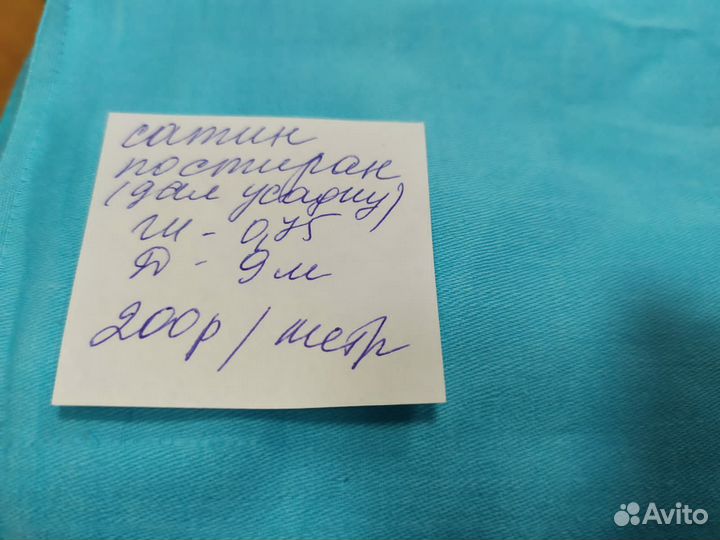 сатин
постиран
(дал усадку)
Ш - 0,75
Д - 9 м
200р / метр
Avito